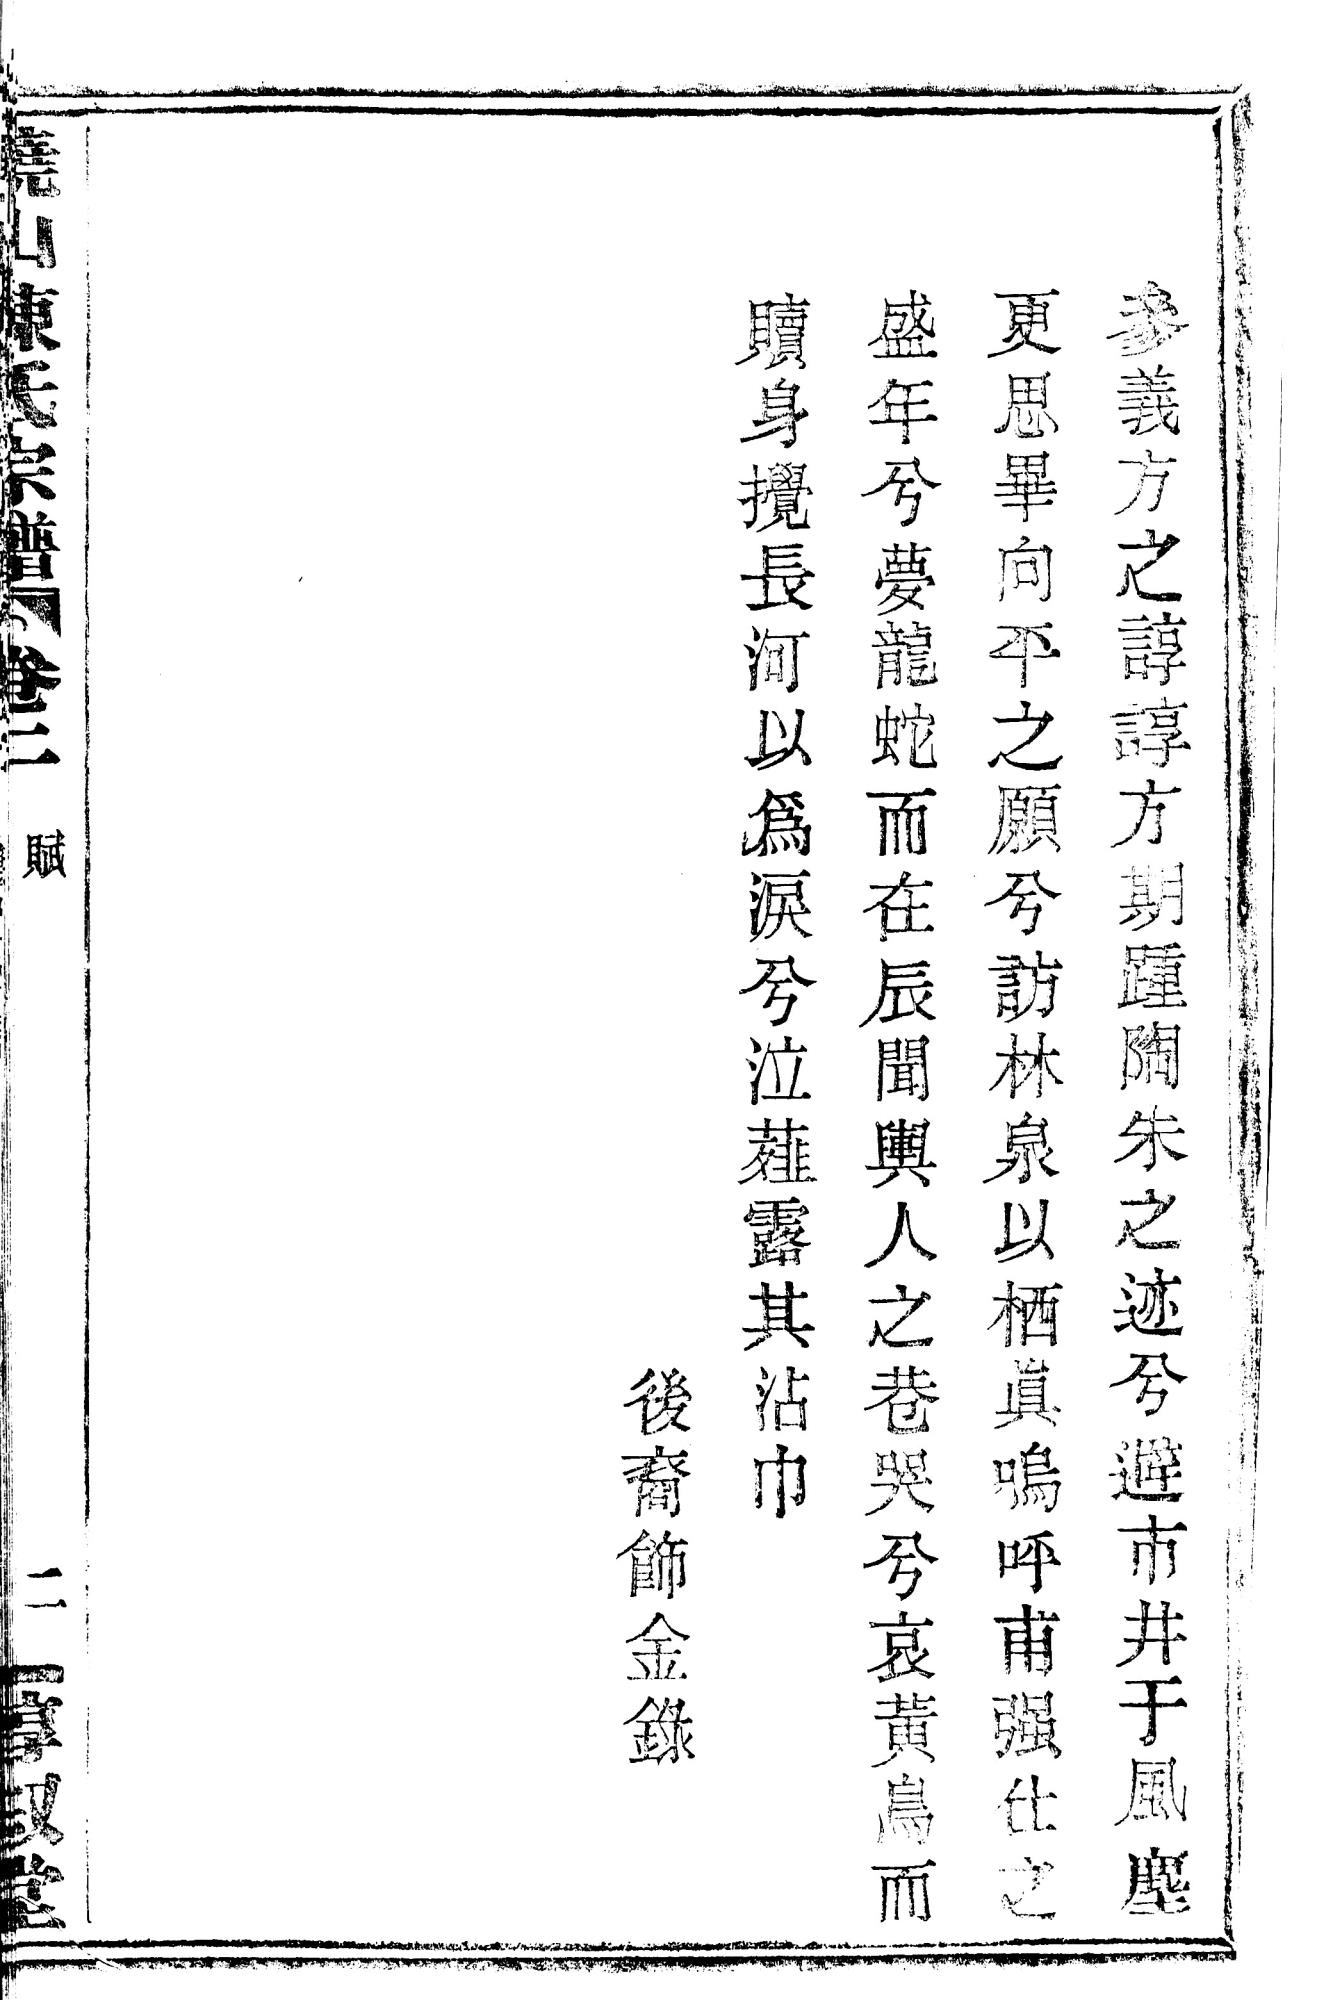 參義方之諄諄方期踵陶朱之迹兮避市井于風塵
更思畢向平之願兮訪林泉以栖眞嗚呼甫强仕之
盛年兮夢龍蛇而在辰聞輿人之巷哭兮哀黃鳥而
贖身攪長河以爲淚兮泣薤露其沾巾
後裔飾金錄
山陳氏宗譜 卷二 賦 二 惇叙堂